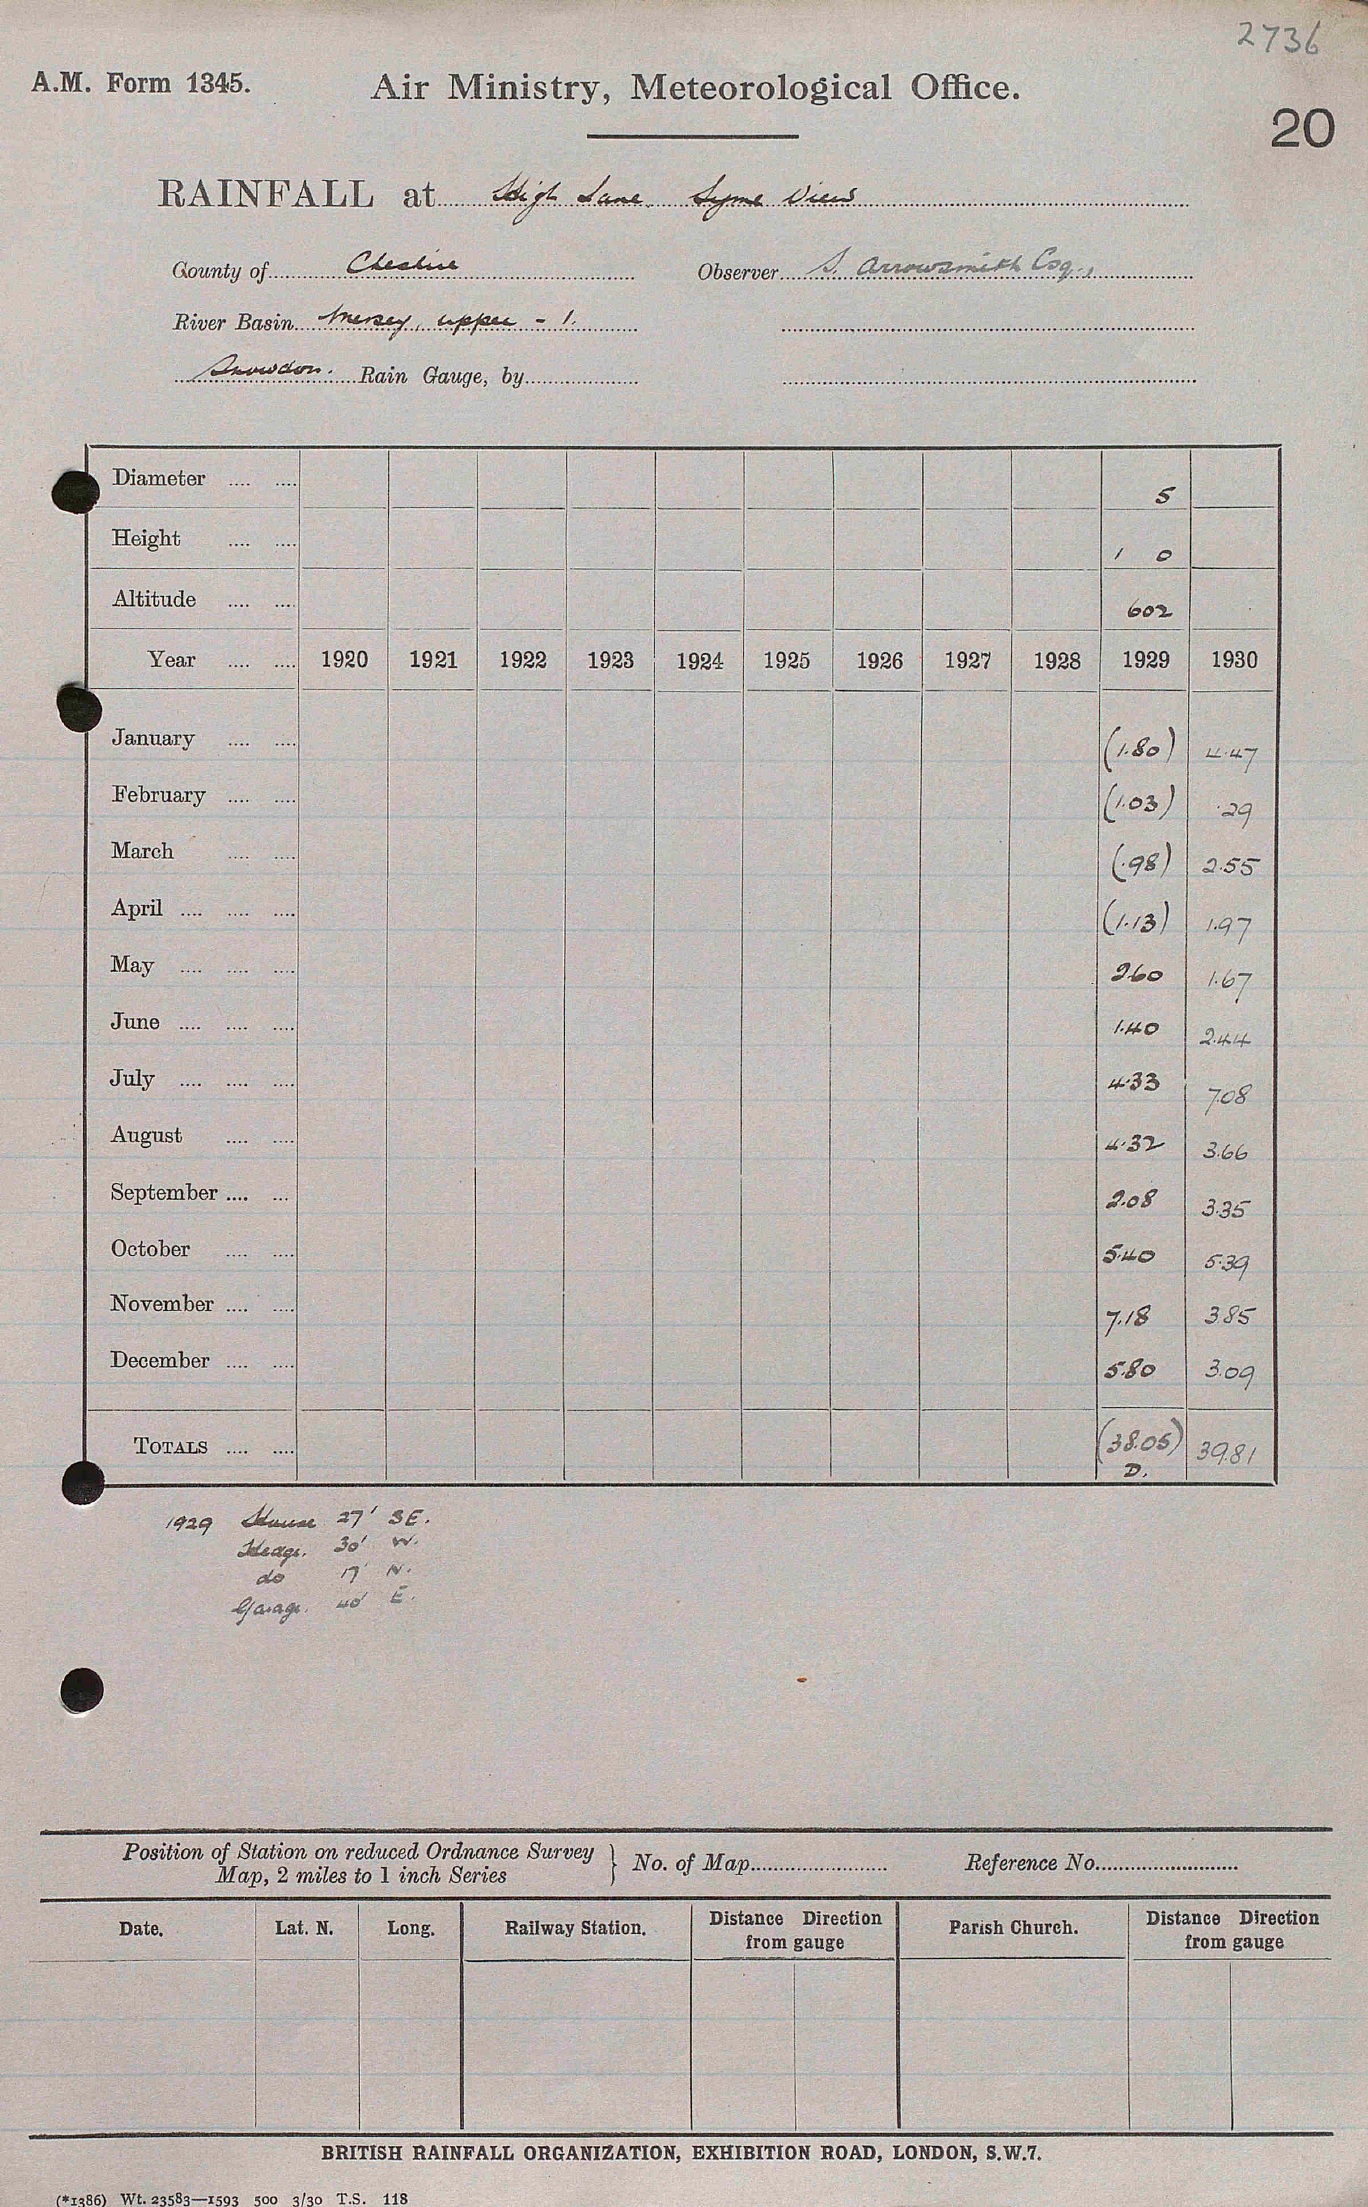 2736
A.M. Form 1345. Air Ministry, Meteorological Office.
20
RAINFALL at High Lane. Lyme View
County of Cheshire Observer S. Arrowsmith Esq.,
River Basin Mersey, upper - 1.
Snowdon. Rain Gauge, by
Diameter .... .... 5
Height .... .... 1 0
Altitude .... .... 602
Year .... .... 1920 1921 1922 1923 1924 1925 1926 1927 1928 1929 1930
January .... .... (1.80) 4.47
February .... .... (1.03) .29
March .... .... (.98) 2.55
April .... .... .... (1.13) 1.97
May .... .... .... 2.60 1.67
June .... .... .... 1.40 2.44
July .... .... .... 4.33 7.08
August .... .... 4.32 3.66
September .... ... 2.08 3.35
October .... .... 5.40 5.39
November .... .... 7.18 3.85
December .... .... 5.80 3.09
TOTALS .... .... (38.05) 39.81
D.
1929 House 27' SE.
Hedge. 30' W.
do 17' N.
Garage. 40' E.
Position of Station on reduced Ordnance Survey
Map, 2 miles to 1 inch Series } No. of Map Reference No.
Date. Lat. N. Long. Railway Station. Distance Direction from gauge Parish Church. Distance Direction from gauge
BRITISH RAINFALL ORGANIZATION, EXHIBITION ROAD, LONDON, S.W.7.
(*1386) Wt. 23583—1593 500 3/30 T.S. 118